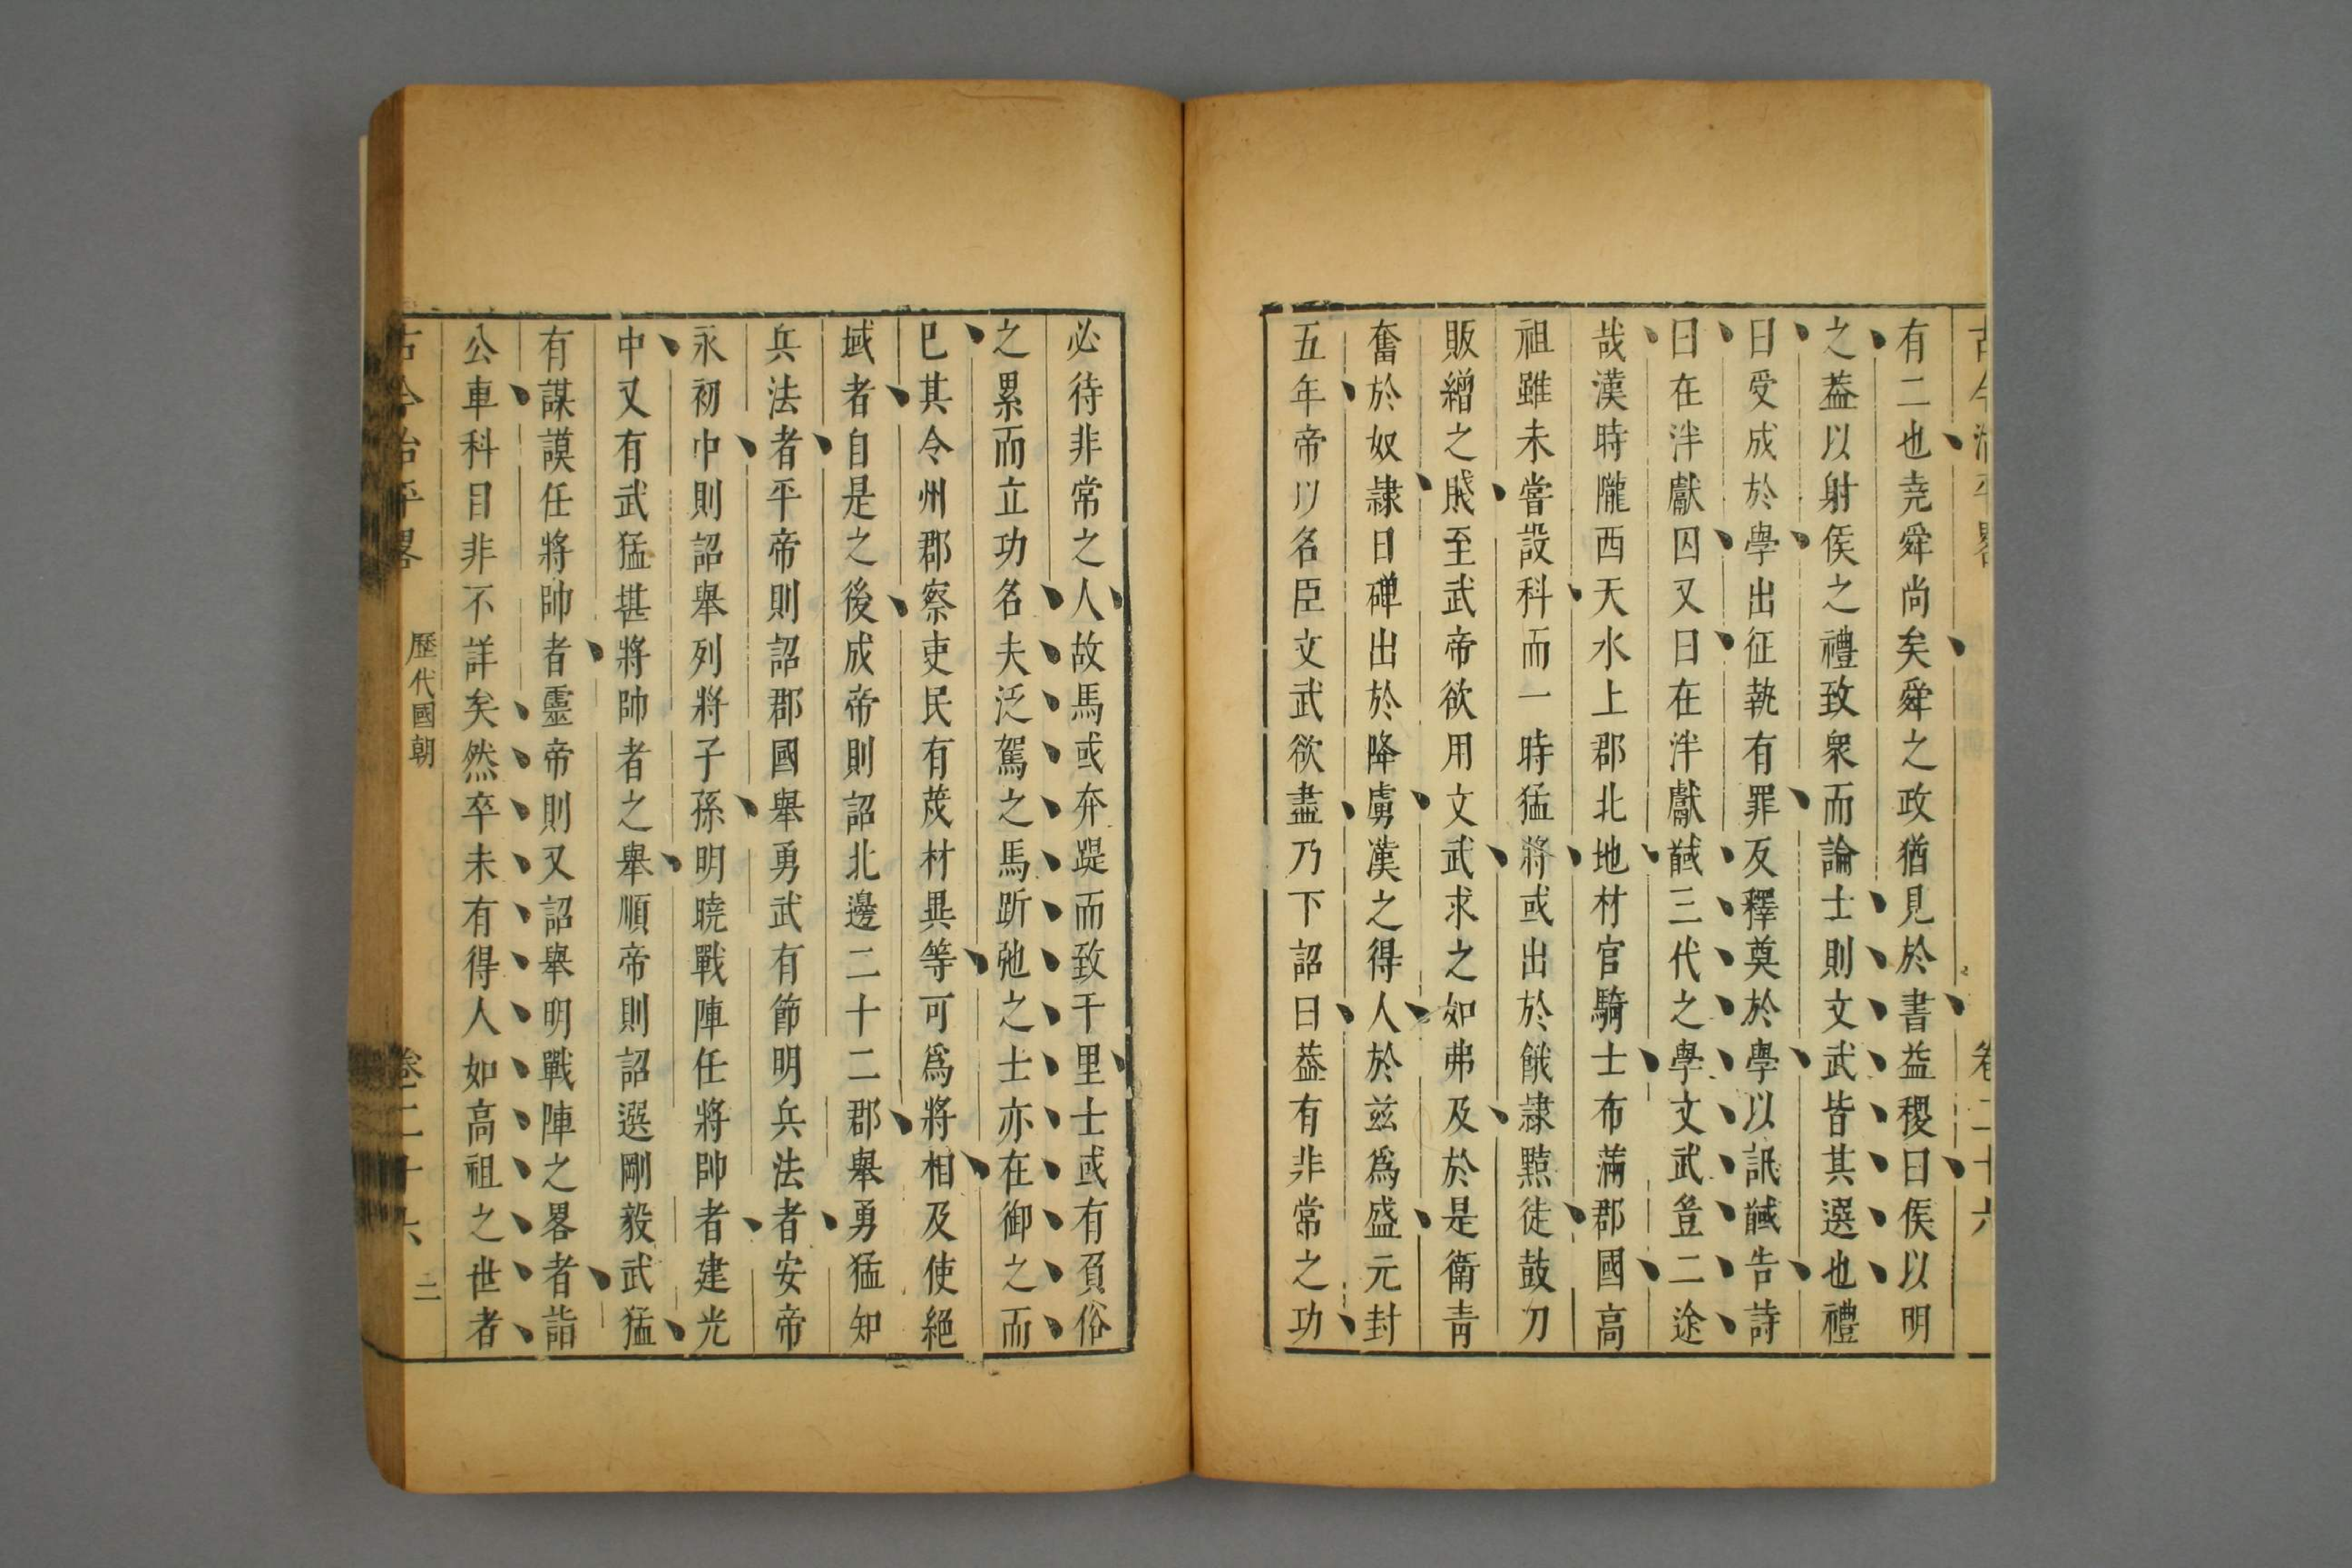 古今治平畧 卷二十六
有二也堯舜尚矣舜之政猶見於書益稷曰侯以明
之葢以射侯之禮致衆而論士則文武皆其選也禮
曰受成於學出征執有罪反釋奠於學以訊馘告詩
曰在泮獻囚又曰在泮獻馘三代之學文武豈二途
哉漢時隴西天水上郡北地材官騎士布滿郡國高
祖雖未嘗設科而一時猛將或出於餓隷黥徒鼓刀
販繒之賤至武帝欲用文武求之如弗及於是衛青
奮於奴隷日磾出於降虜漢之得人於兹爲盛元封
五年帝以名臣文武欲盡乃下詔曰葢有非常之功
必待非常之人故馬或奔踶而致千里士或有負俗
之累而立功名夫泛駕之馬跅弛之士亦在御之而
已其令州郡察吏民有茂材異等可爲將相及使絕
域者自是之後成帝則詔北邊二十二郡舉勇猛知
兵法者平帝則詔郡國舉勇武有節明兵法者安帝
永初中則詔舉列將子孫明曉戰陣任將帥者建光
中又有武猛堪將帥者之舉順帝則詔選剛毅武猛
有謀謨任將帥者靈帝則又詔舉明戰陣之畧者詣
公車科目非不詳矣然卒未有得人如高祖之世者
古今治平畧 歷代國朝 卷二十六 二